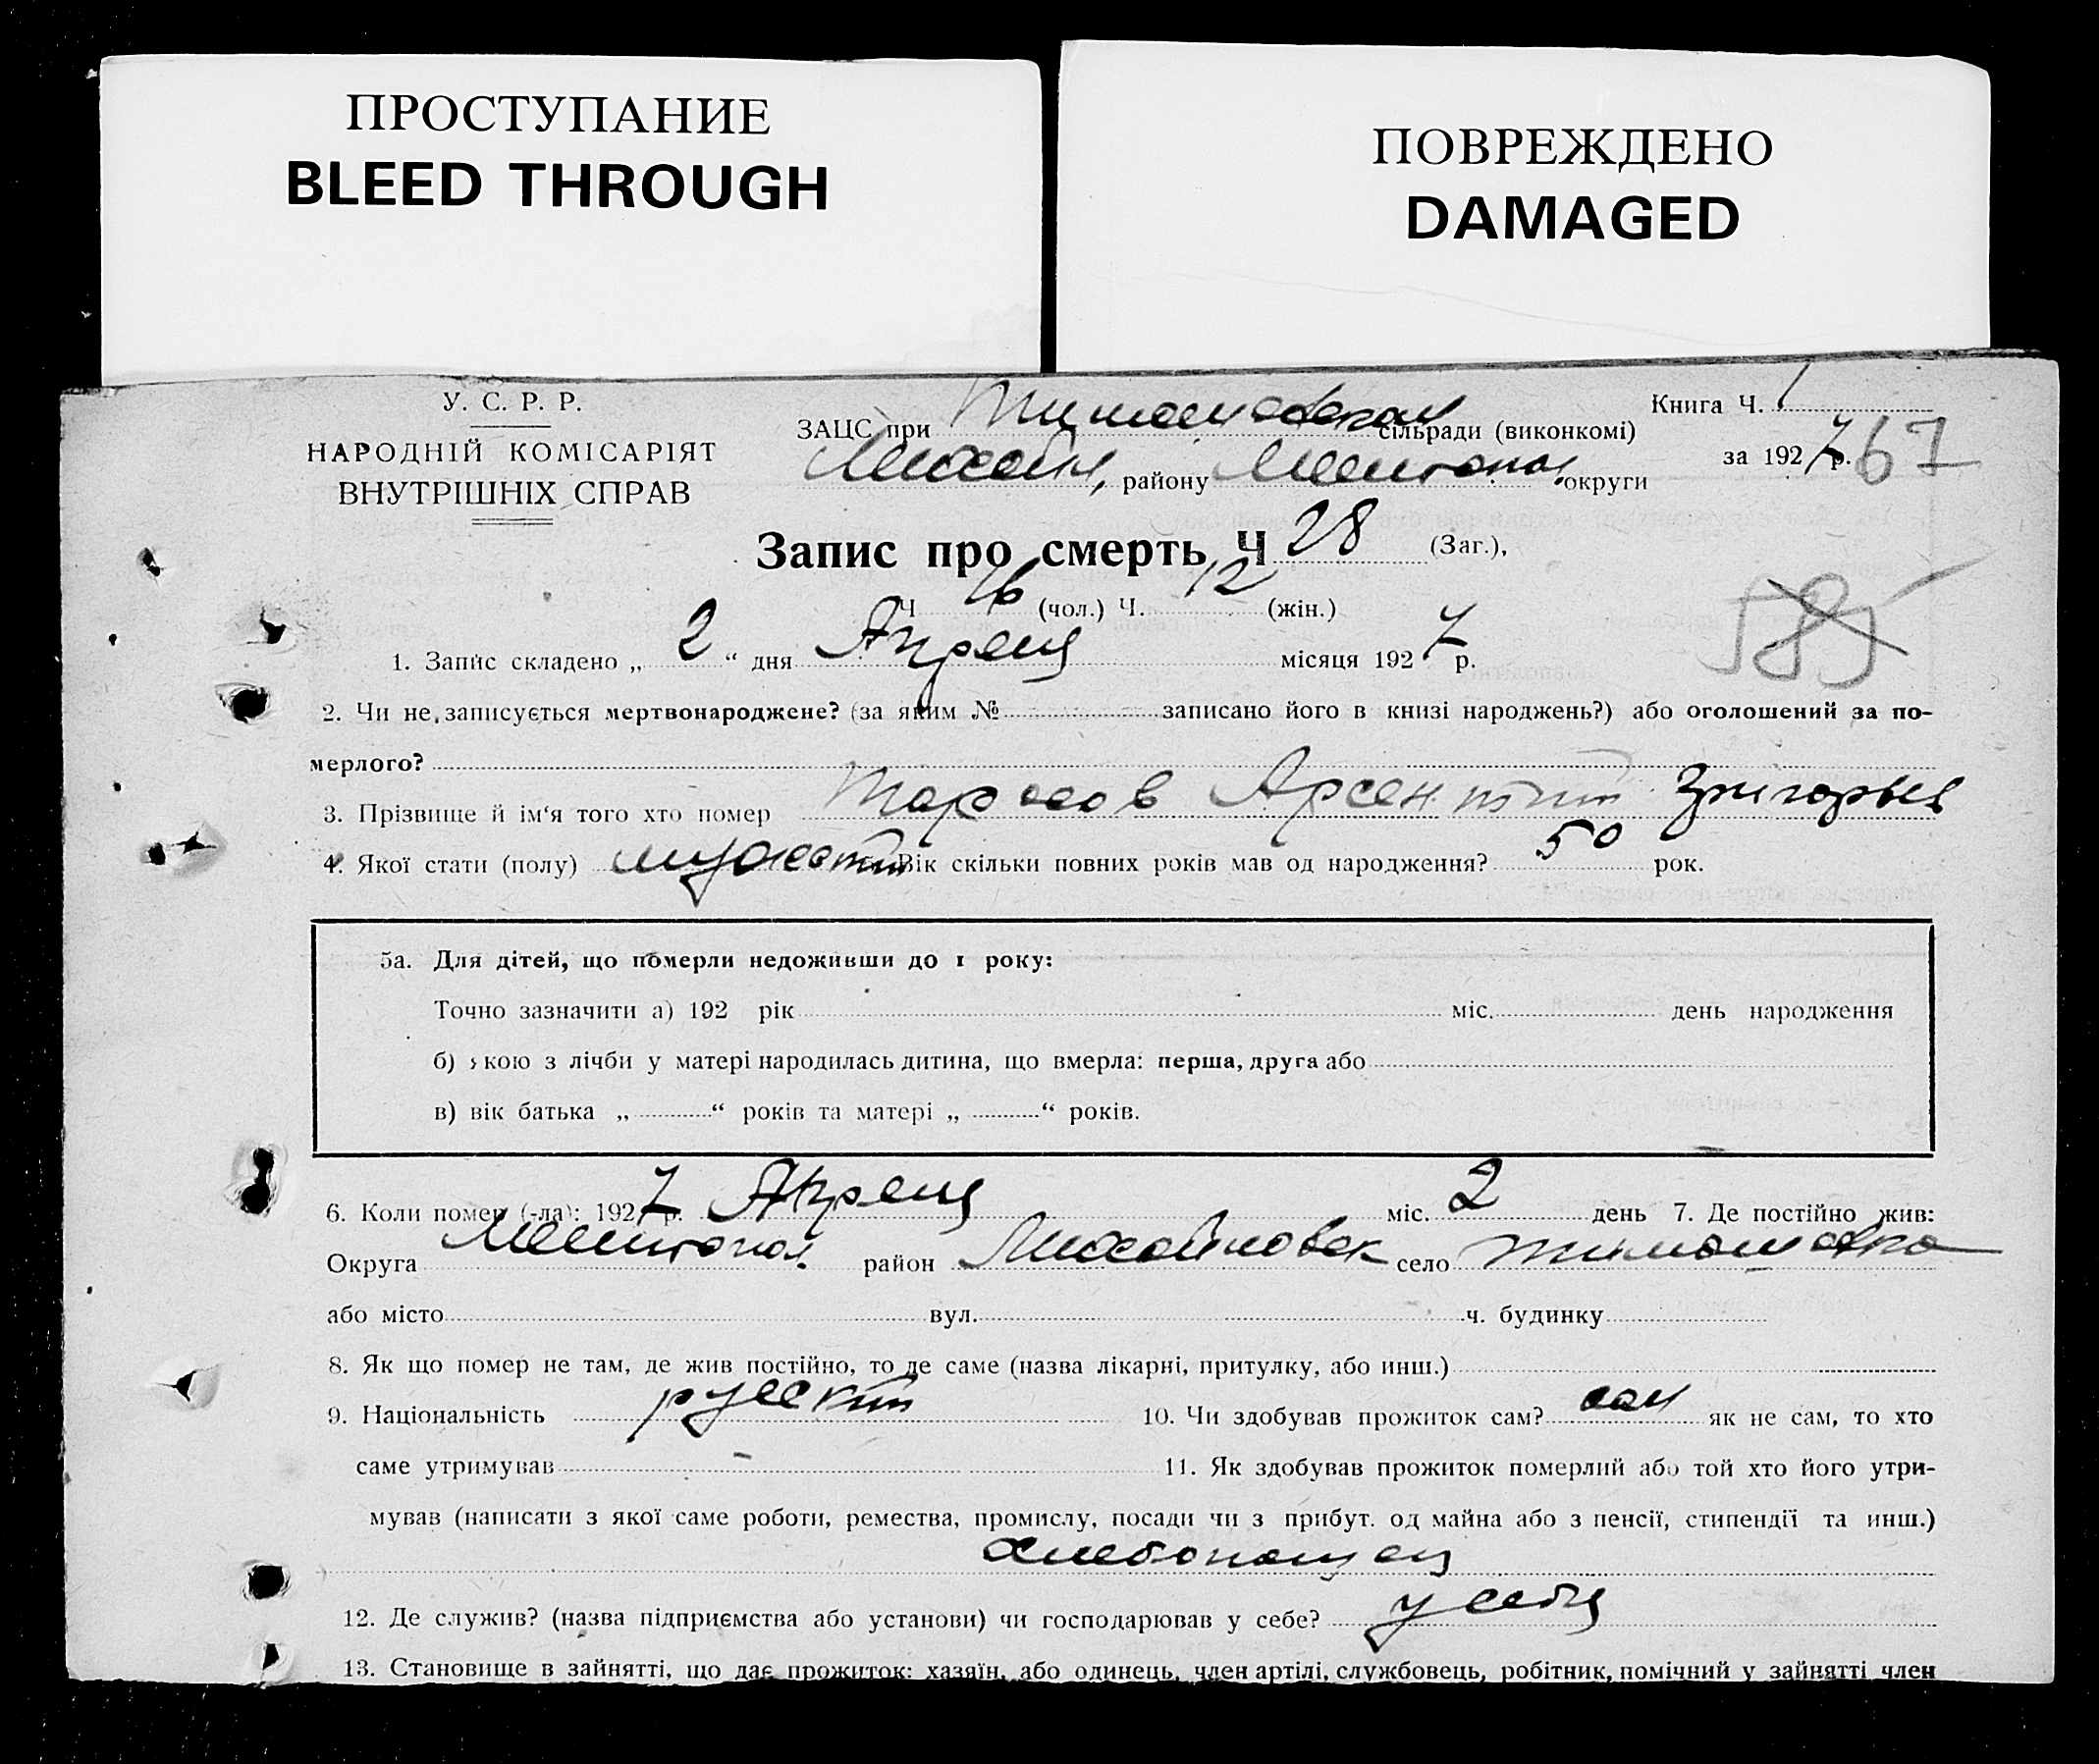 ПРОСТУПАНИЕ
BLEED THROUGH
ПОВРЕЖДЕНО
DAMAGED
У. С. Р. Р.
НАРОДНІЙ КОМІСАРІЯТ
ВНУТРІШНІХ СПРАВ
Книга Ч. 1
за 1927 р. 67
ЗАЦС при Тимошевском сільради (виконкомі)
Михайл, району Мелитопол. округи
Запис про смерть Ч 28 (Заг.),
Ч 16 (чол.) Ч. 12 (жін.)
585
1. Запис складено „ 2 “ дня Апреля місяця 1927 р.
2. Чи не записується мертвонароджене? (за яким № записано його в книзі народжень?) або оголошений за по-
мерлого?
3. Прізвище й ім‘я того хто помер Тарасов Арсентий Григорьев
4. Якої стати (полу) мужской Вік скільки повних років мав од народження? 50 рок.
5а. Для дітей, що померли недоживши до 1 року:
Точно зазначити а) 192 рік міс. день народження
б) якою з лічби у матері народилась дитина, що вмерла: перша, друга або
в) вік батька „ “ років та матері „ “ років.
6. Коли помер (-ла): 1927 р. Апреля міс. 2 день 7. Де постійно жив:
Округа Мелитопол. район Михайловск село Тимошевка
або місто вул. ч. будинку
8. Як що помер не там, де жив постійно, то де саме (назва лікарні, притулку, або инш.)
9. Національність русский 10. Чи здобував прожиток сам? сам як не сам, то хто
саме утримував 11. Як здобував прожиток померлий або той хто його утри-
мував (написати з якої саме роботи, ремества, промислу, посади чи з прибут. од майна або з пенсії, стипендії та инш.)
Хлебопашец
12. Де служив? (назва підприємства або установи) чи господарював у себе? у себя
13. Становище в зайнятті, що дає прожиток: хазяїн, або одинець, член артілі, службовець, робітник, помічний у зайнятті член